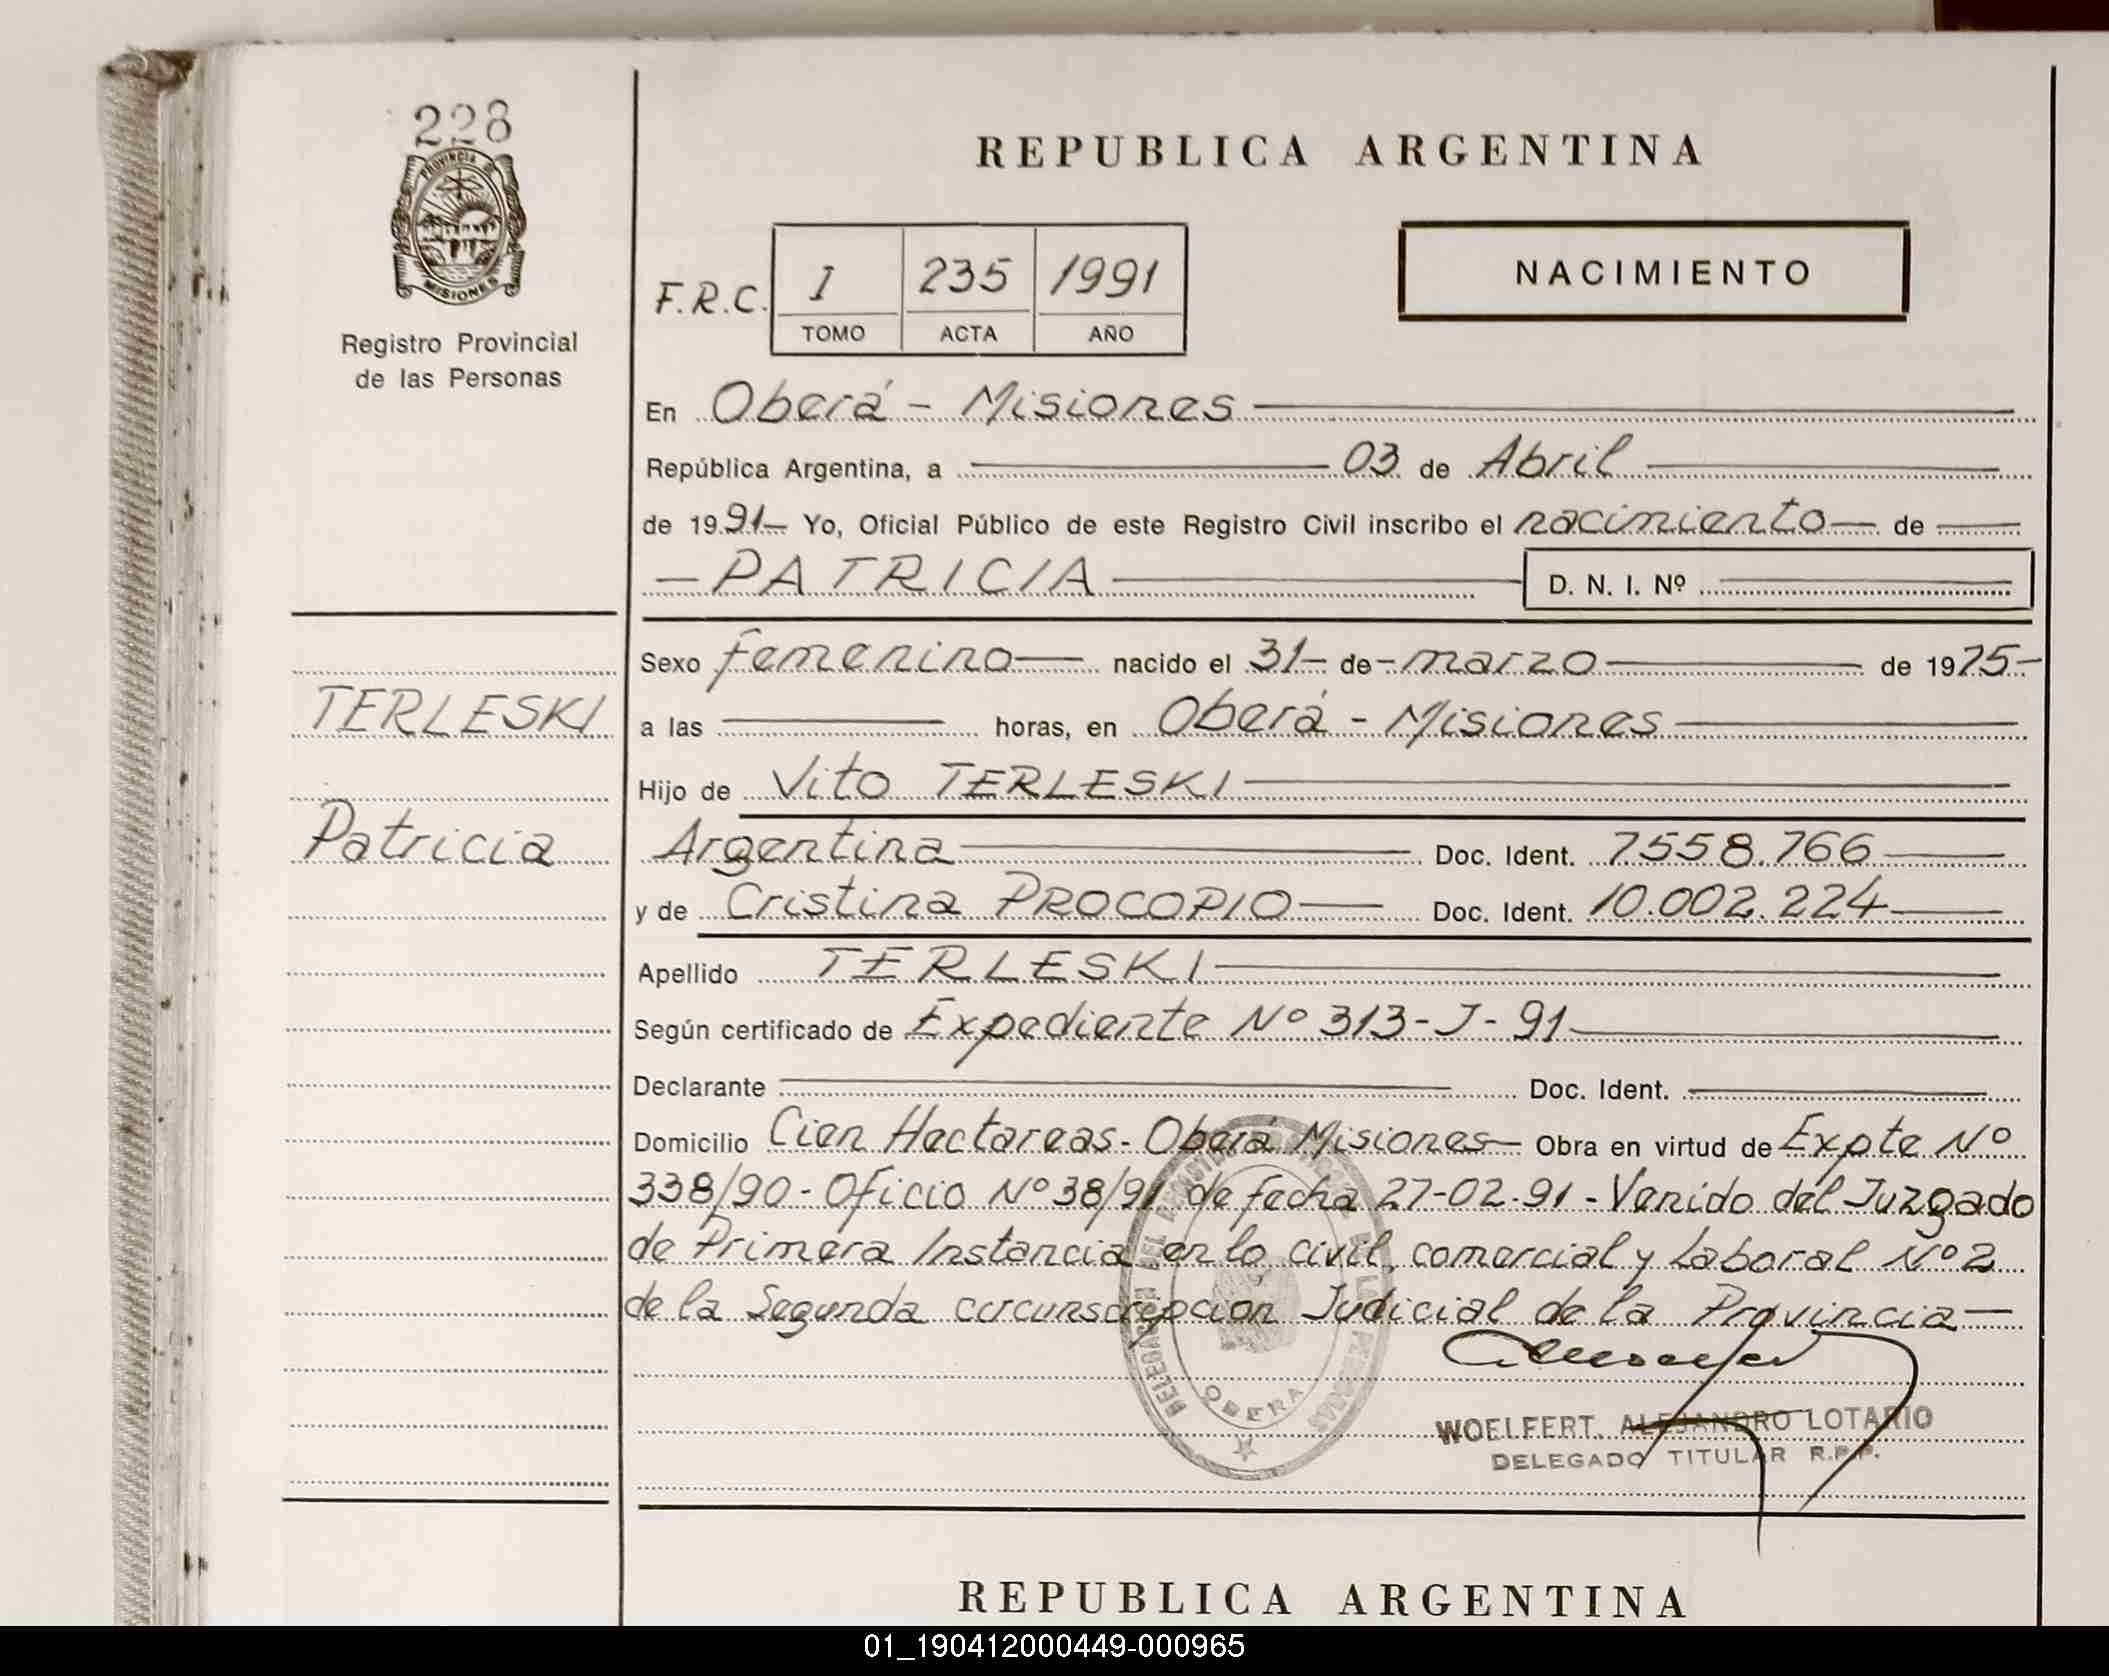 228
PROVINCIA DE
MISIONES
Registro Provincial
de las Personas
TERLESKI
Patricia
REPUBLICA ARGENTINA
F.R.C. I 235 1991
TOMO ACTA AÑO
NACIMIENTO
En Oberá - Misiones
República Argentina, a 03 de Abril
de 1991 Yo, Oficial Público de este Registro Civil inscribo el nacimiento de
PATRICIA D. N. I. Nº
Sexo femenino nacido el 31 de marzo de 1975
a las horas, en Oberá - Misiones
Hijo de Vito TERLESKI
Argentina Doc. Ident. 7558.766
y de Cristina PROCOPIO Doc. Ident. 10.002.224
Apellido TERLESKI
Según certificado de Expediente Nº 313-J-91
Declarante Doc. Ident.
Domicilio Cien Hectareas - Oberá Misiones Obra en virtud de Expte Nº
338/90 - Oficio Nº 38/91 de fecha 27-02-91 - Venido del Juzgado
de Primera Instancia en lo civil, comercial y Laboral Nº 2
de la Segunda circunscripcion Judicial de la Provincia
OBERA
WOELFERT, ALEJANDRO LOTARIO
DELEGADO TITULAR R.P.P.
REPUBLICA ARGENTINA
01_190412000449-000965